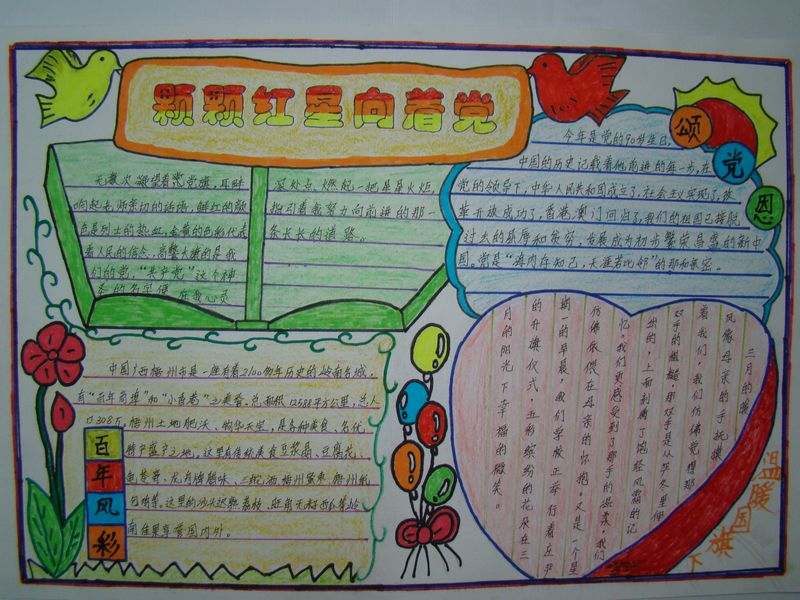 颗颗红星向着党
无数次凝望着党旗，耳畔
响起老师亲切的话语，鲜红的颜
色是烈士的热血，金黄的色彩代表
着人民的信念，高擎大旗的是我
们的党，“共产党”这个神
圣的名字便 在我心灵
深处点燃起一把星星火炬，
指引着我努力向前进的那一
条长长的道路。
颂
党
恩
今年是党的90岁生日，
中国的历史记载着他前进的每一步，在
党的领导下，中华人民共和国成立了，社会主义实现了，改
革开放成功了，香港，澳门回归了，我们的祖国已摆脱
过去的屈辱和贫穷，发展成为初步繁荣昌盛的新中
国。党是“海内存知己，天涯若比邻”的那和亲密。
中国广西梧州市是一座有着2100多年历史的岭南名城，
有“百年商埠”和“小香港”之美誉，总面积12588平方公里，总人
口308万，梧州土地肥沃、物华天宝，是各种美食、名优
特产盛产之地，这里有传统美食豆浆晶、豆腐花、
龟苓膏、龙舟牌腊味、三蛇酒梅蜜果 梧州纸
包鸡等。这里的沙头迟熟荔枝、旺甸无籽西瓜等岭
南佳果享誉国内外。
百
年
风
彩
三月的暖
风像母亲的手抚摸
着我们，我们仿佛觉得那
双手的粗糙 那双手是从寒冬里伸
出的，上面刻满了饱经风霜的记
忆。我们更感受到了那手的温柔，我们
仿佛依偎在母亲的怀抱。又是一个星
期一的早晨，我们学校正举行着庄严
的升旗仪式，五彩缤纷的花朵在三
月的阳光下幸福的微笑。
温暖国旗下